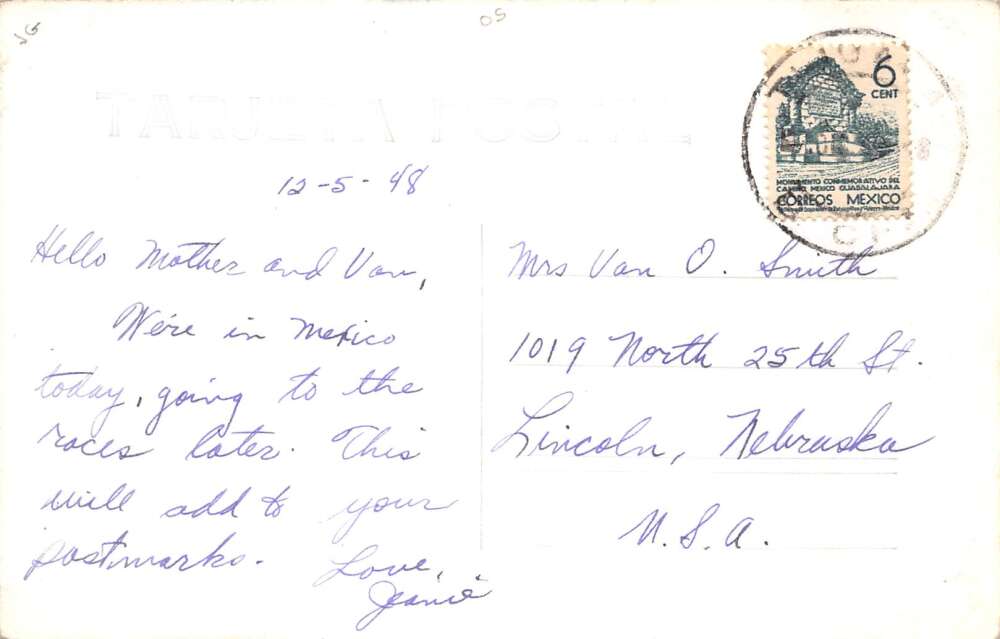 JG
OS
TARJETA POSTAL
6
CENT
MONUMENTO CONMEMORATIVO DEL
CAMINO, MEXICO GUADALAJARA
CORREOS MEXICO
12-5-48
Hello Mother and Van,
We're in Mexico
today, going to the
races later. This
will add to your
postmarks. Love,
Jeanie
Mrs Van O. Smith
1019 North 25th St.
Lincoln, Nebraska
U.S.A.